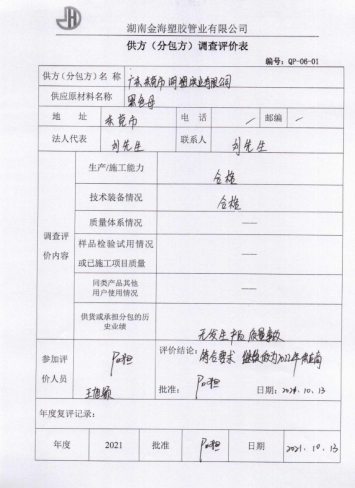 JH
湖南金海塑胶管业有限公司
供方（分包方）调查评价表
编号：QP-06-01
供方（分包方）名 称 广东东莞市
供应原材料名称 黑色母
地 址 东莞市 电 话 / 邮编 /
法人代表 刘先生 联系人 刘先生
调查评价内容
生产/施工能力 合格
技术装备情况 合格
质量体系情况 ——
样品检验试用情况或已施工项目质量 ——
同类产品其他用户使用情况 ——
供货或承担分包的历史业绩 无发生产品质量事故
参加评价人员
评价结论：符合要求 继续做为2022年供应商
批准： 日期：2021.10.13
年度复评记录：
年度 2021 批准 日期 2021.10.13